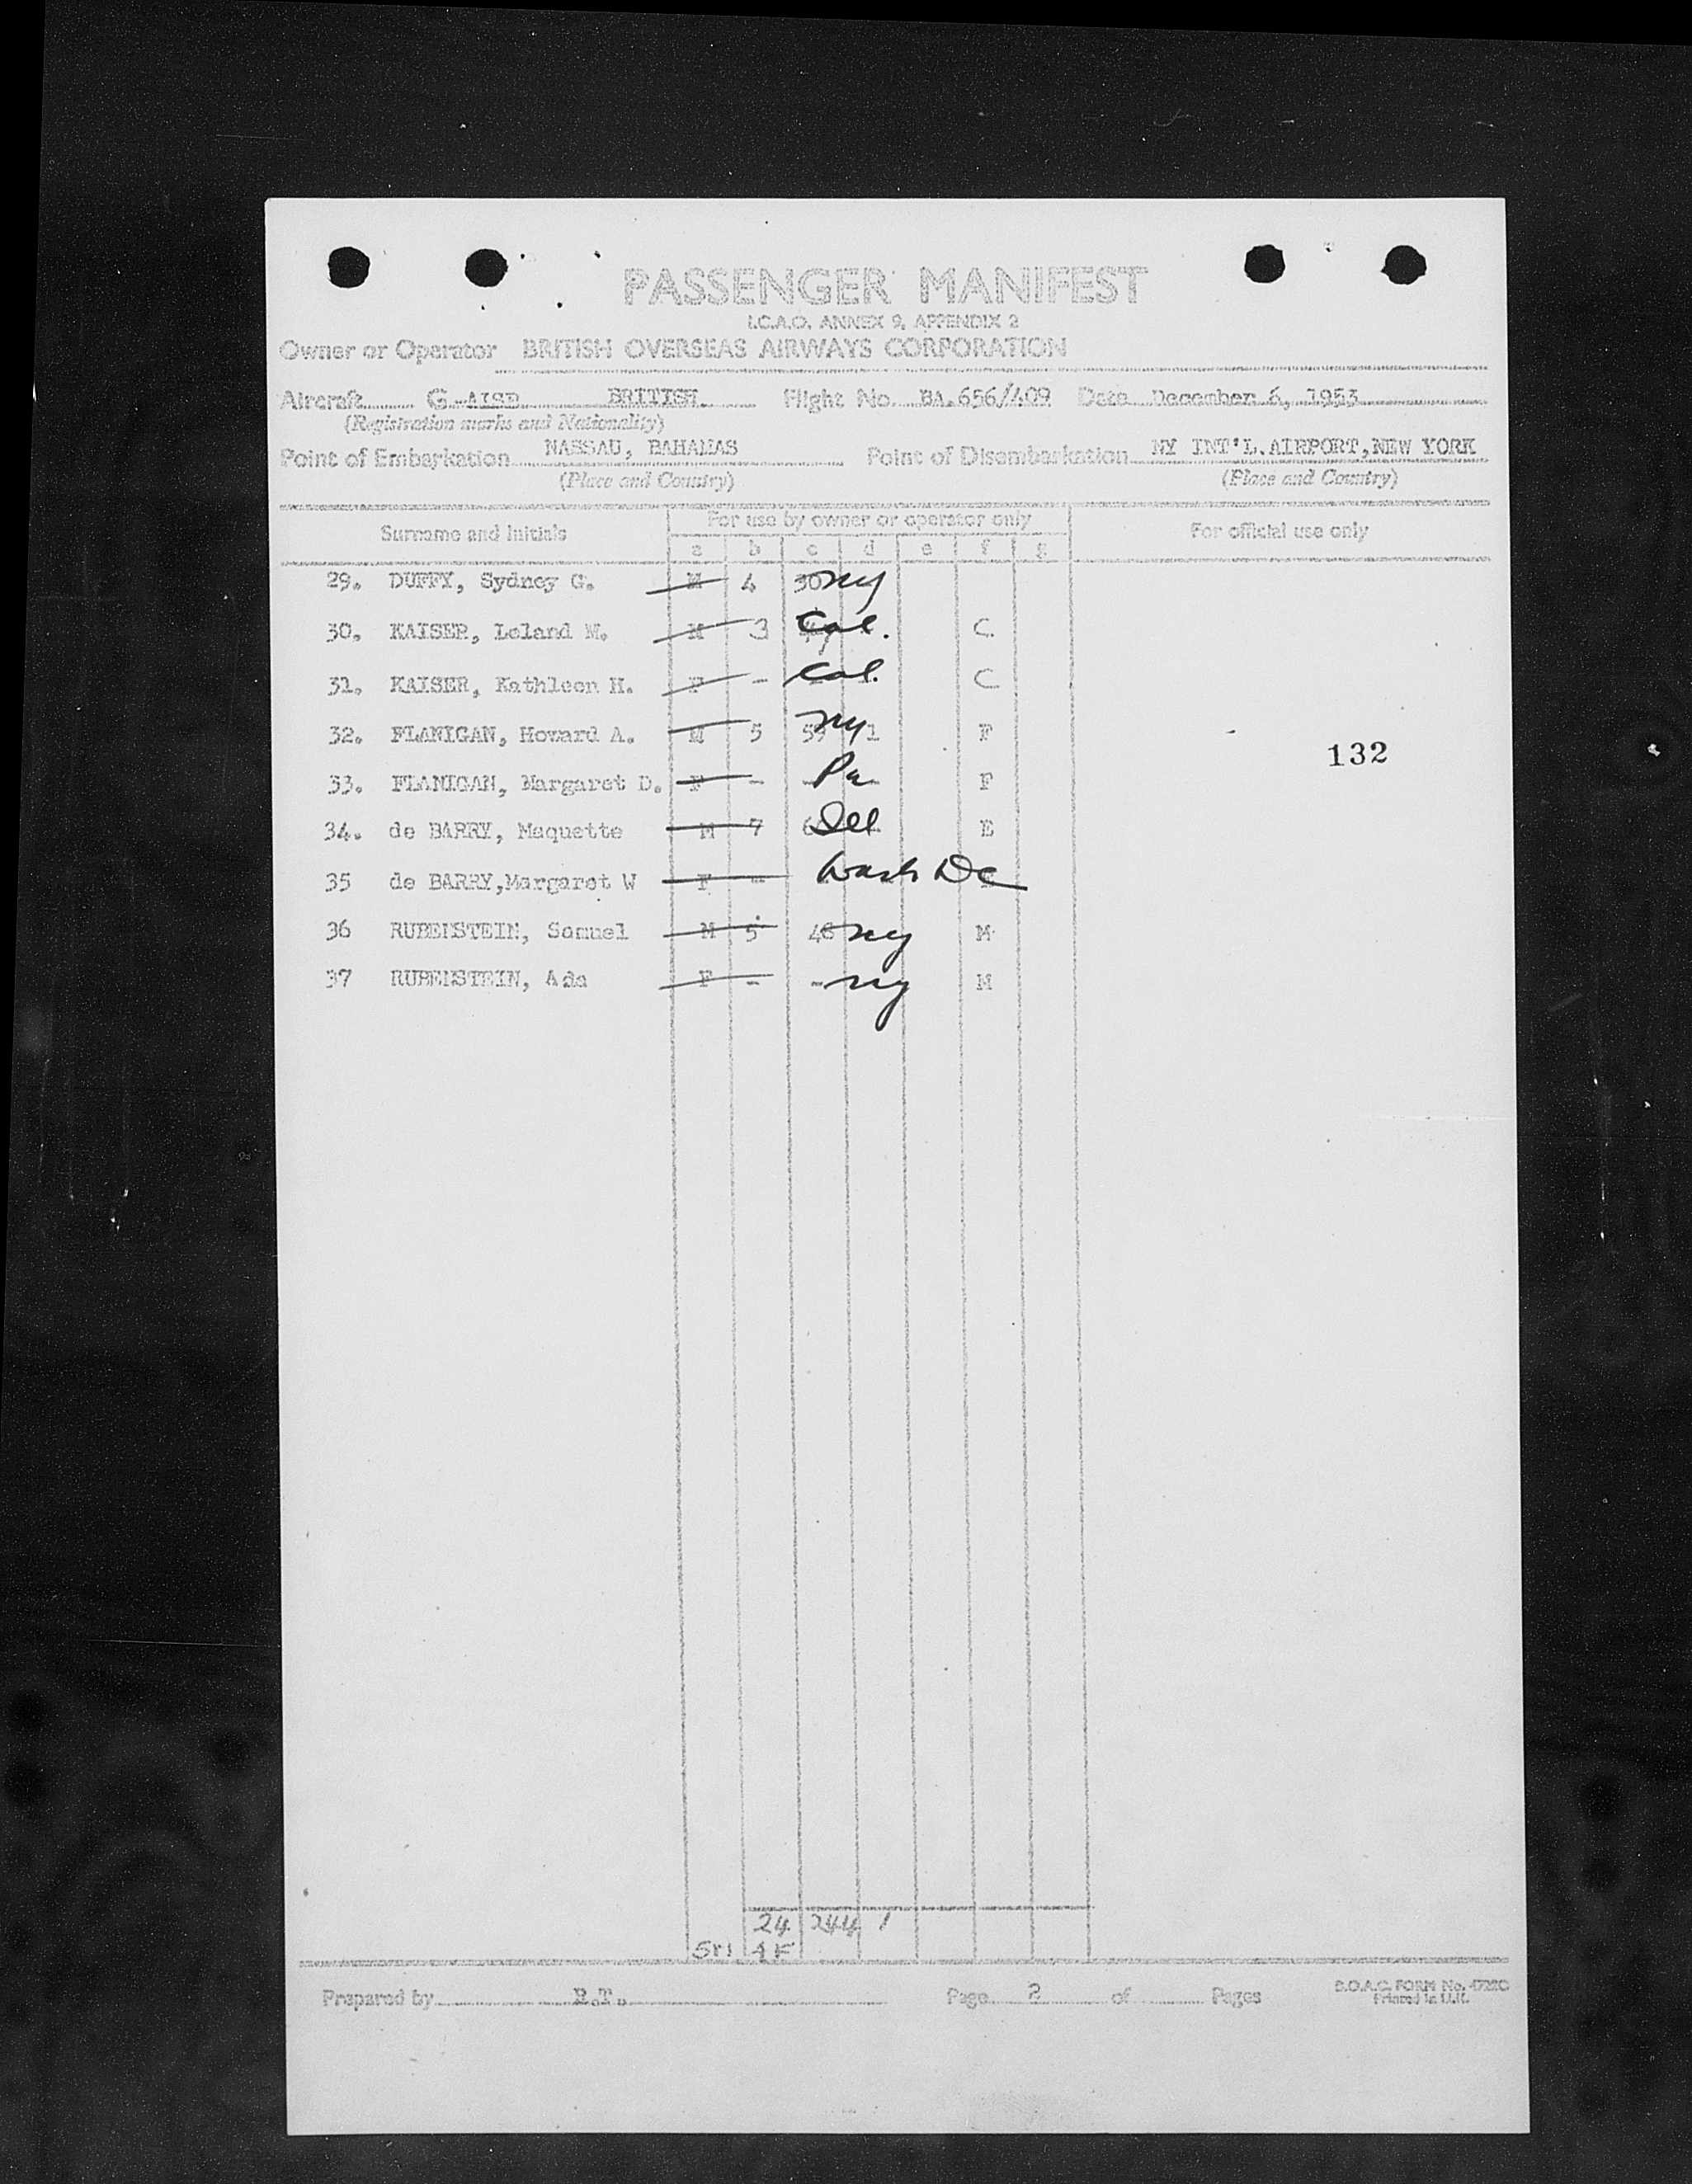 PASSENGER MANIFEST
I.C.A.O. ANNEX 9, APPENDIX 2
Owner or Operator BRITISH OVERSEAS AIRWAYS CORPORATION
Aircraft G-AISD BRITISH Flight No. BA.656/409 Date December 6, 1953
(Registration marks and Nationality)
Point of Embarkation NASSAU, BAHAMAS Point of Disembarkation NY INT'L.AIRPORT,NEW YORK
(Place and Country) (Place and Country)
Surname and Initials For use by owner or operator only For official use only
a b c d e f g
29. DUFFY, Sydney G. M 4 30 ny
30. KAISER, Leland M. M 3 Cal. C
31. KAISER, Kathleen H. F - Cal. C
32. FLANIGAN, Howard A. M 5 59 ny 1 F
132
33. FLANIGAN, Margaret D. F - Pa F
34. de BARRY, Maquette M 7 Ill E
35 de BARRY,Margaret W F - Wash DC
36 RUBENSTEIN, Samuel M 5 48 ny M
37 RUBENSTEIN, Ada F - - ny M
24 244 1
5M 4F
Prepared by R.T. Page 2 of Pages B.O.A.C. FORM No.
Printed in U.K.